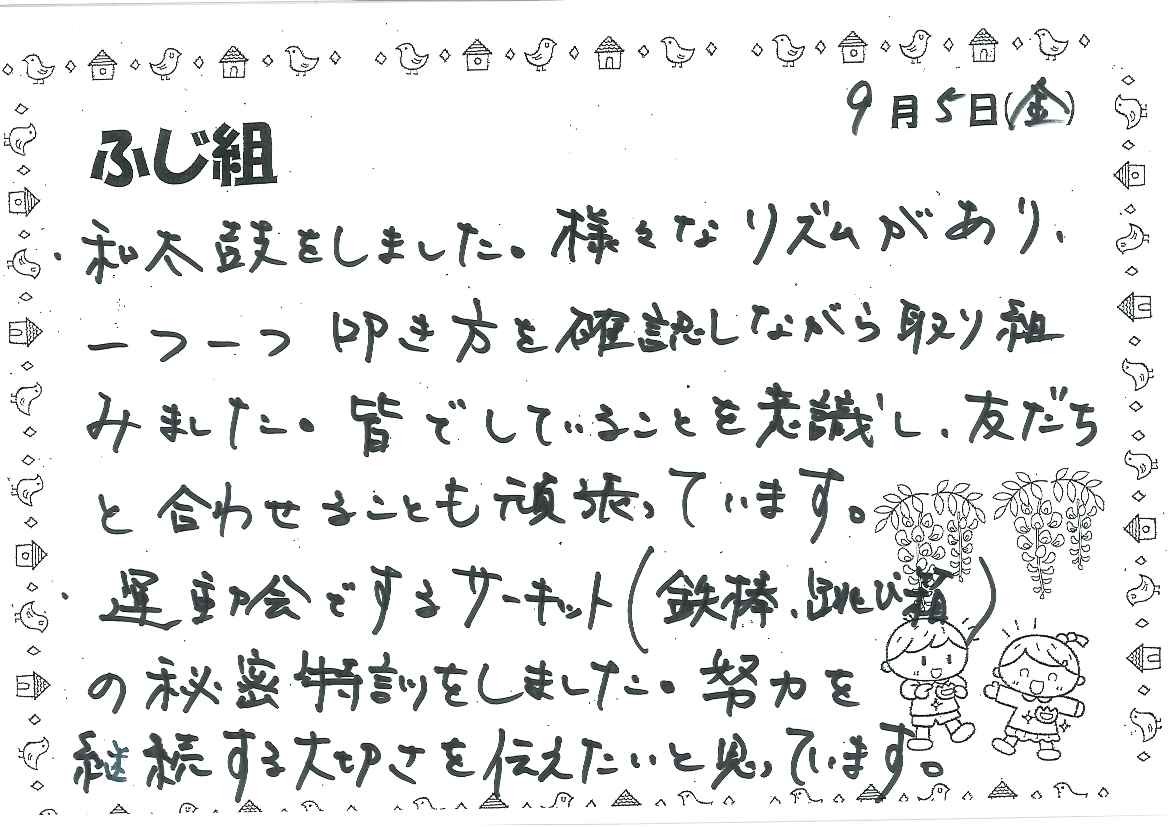 9月5日(金)
ふじ組
・和太鼓をしました。様々なリズムがあり、
一つ一つ叩き方を確認しながら取り組
みました。皆でしていることを意識し、友だち
と合わせることも頑張っています。
・運動会でするサーキット(鉄棒、跳び箱)
の秘密特訓をしました。努力を
継続する大切さを伝えたいと思っています。